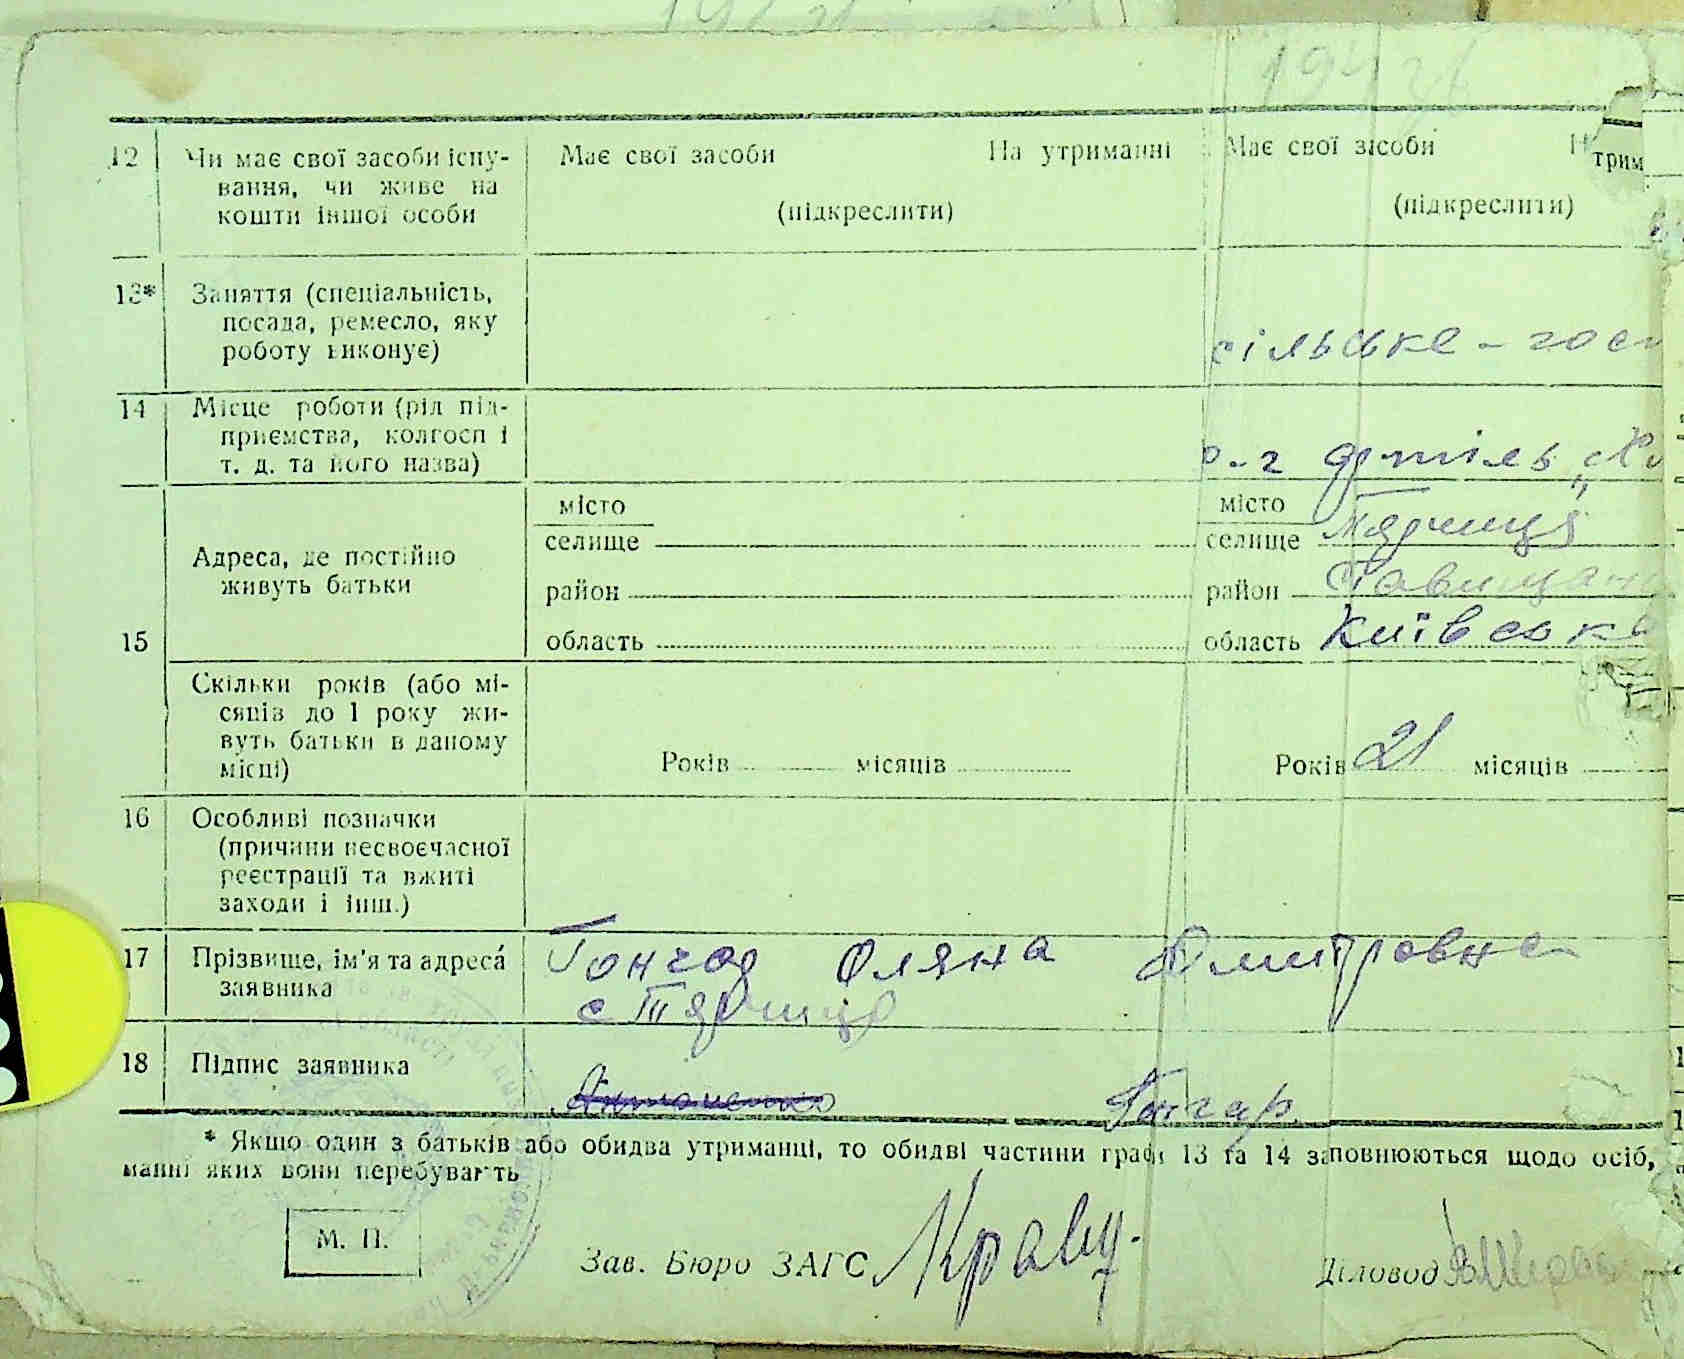 12 Чи має свої засоби існу- Має свої засоби На утриманні Має свої засоби Н
вання, чи живе на трим
кошти іншої особи (підкреслити) (підкреслити)
13* Заняття (спеціальність,
посада, ремесло, яку сільське - госп
роботу виконує)
14 Місце роботи (рід під-
приємства, колгосп і
т. д. та його назва) с-г артіль
місто місто Тарчиця
селище селище
Адреса, де постійно
живуть батьки район район Ставищан
15 область область Київська
Скільки років (або мі-
сяців до 1 року жи-
вуть батьки в даному
місці) Років місяців Років 21 місяців
16 Особливі позначки
(причини несвоєчасної
реєстрації та вжиті
заходи і інш.)
17 Прізвище, ім'я та адреса Гончар Оляна Дмитровна
заявника с Тарчиця
18 Підпис заявника Гончар
* Якщо один з батьків або обидва утриманці, то обидві частини граф 13 та 14 заповнюються щодо осіб,
манні яких вони перебувають
М. П. Зав. Бюро ЗАГС Кравц Діловод